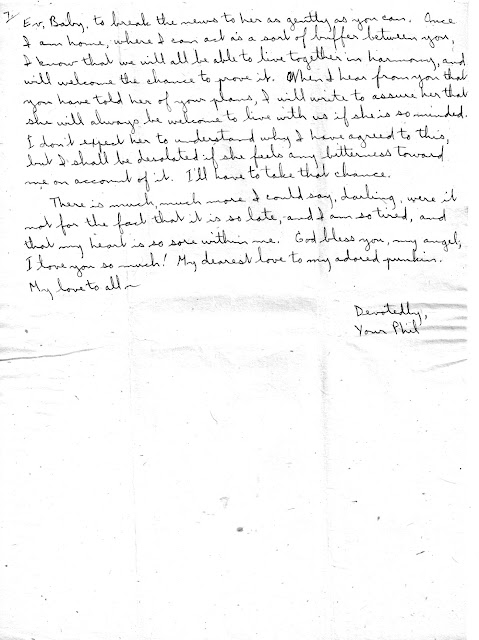 7/
Ev, Baby, to break the news to her as gently as you can. Once
I am home, where I can act as a sort of buffer between you,
I know that we will all be able to live together in harmony, and
will welcome the chance to prove it. When I hear from you that
you have told her of your plans, I will write to assure her that
she will always be welcome to live with us if she is so minded.
I don't expect her to understand why I have agreed to this,
but I shall be desolated if she feels any bitterness toward
me on account of it. I'll have to take that chance.
There is much, much more I could say, darling, were it
not for the fact that it is so late, and I am so tired, and
that my heart is so sore within me. God bless you, my angel,
I love you so much! My dearest love to my adored punkin.
My love to all~
Devotedly,
Your Phil